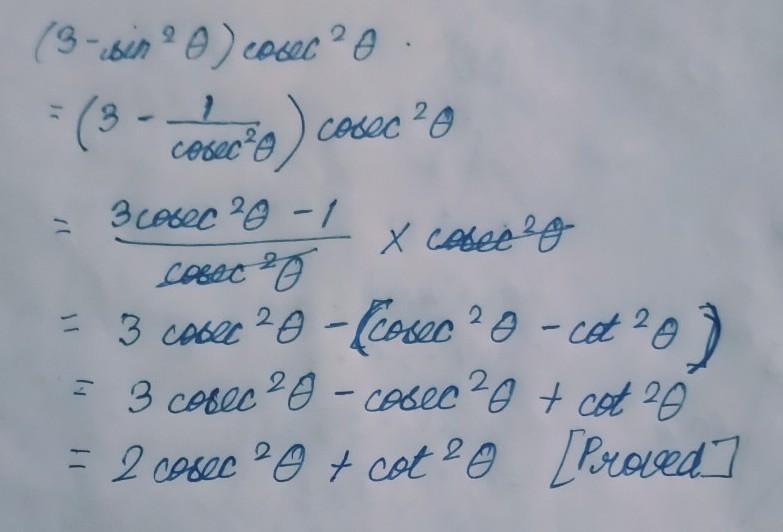 (3-sin²θ)cosec²θ.
= (3 - 1/cosec²θ) cosec²θ
= 3cosec²θ - 1/cosec²θ × cosec²θ
= 3 cosec²θ - (cosec²θ - cot²θ)
= 3 cosec²θ - cosec²θ + cot²θ
= 2 cosec²θ + cot²θ [Proved]